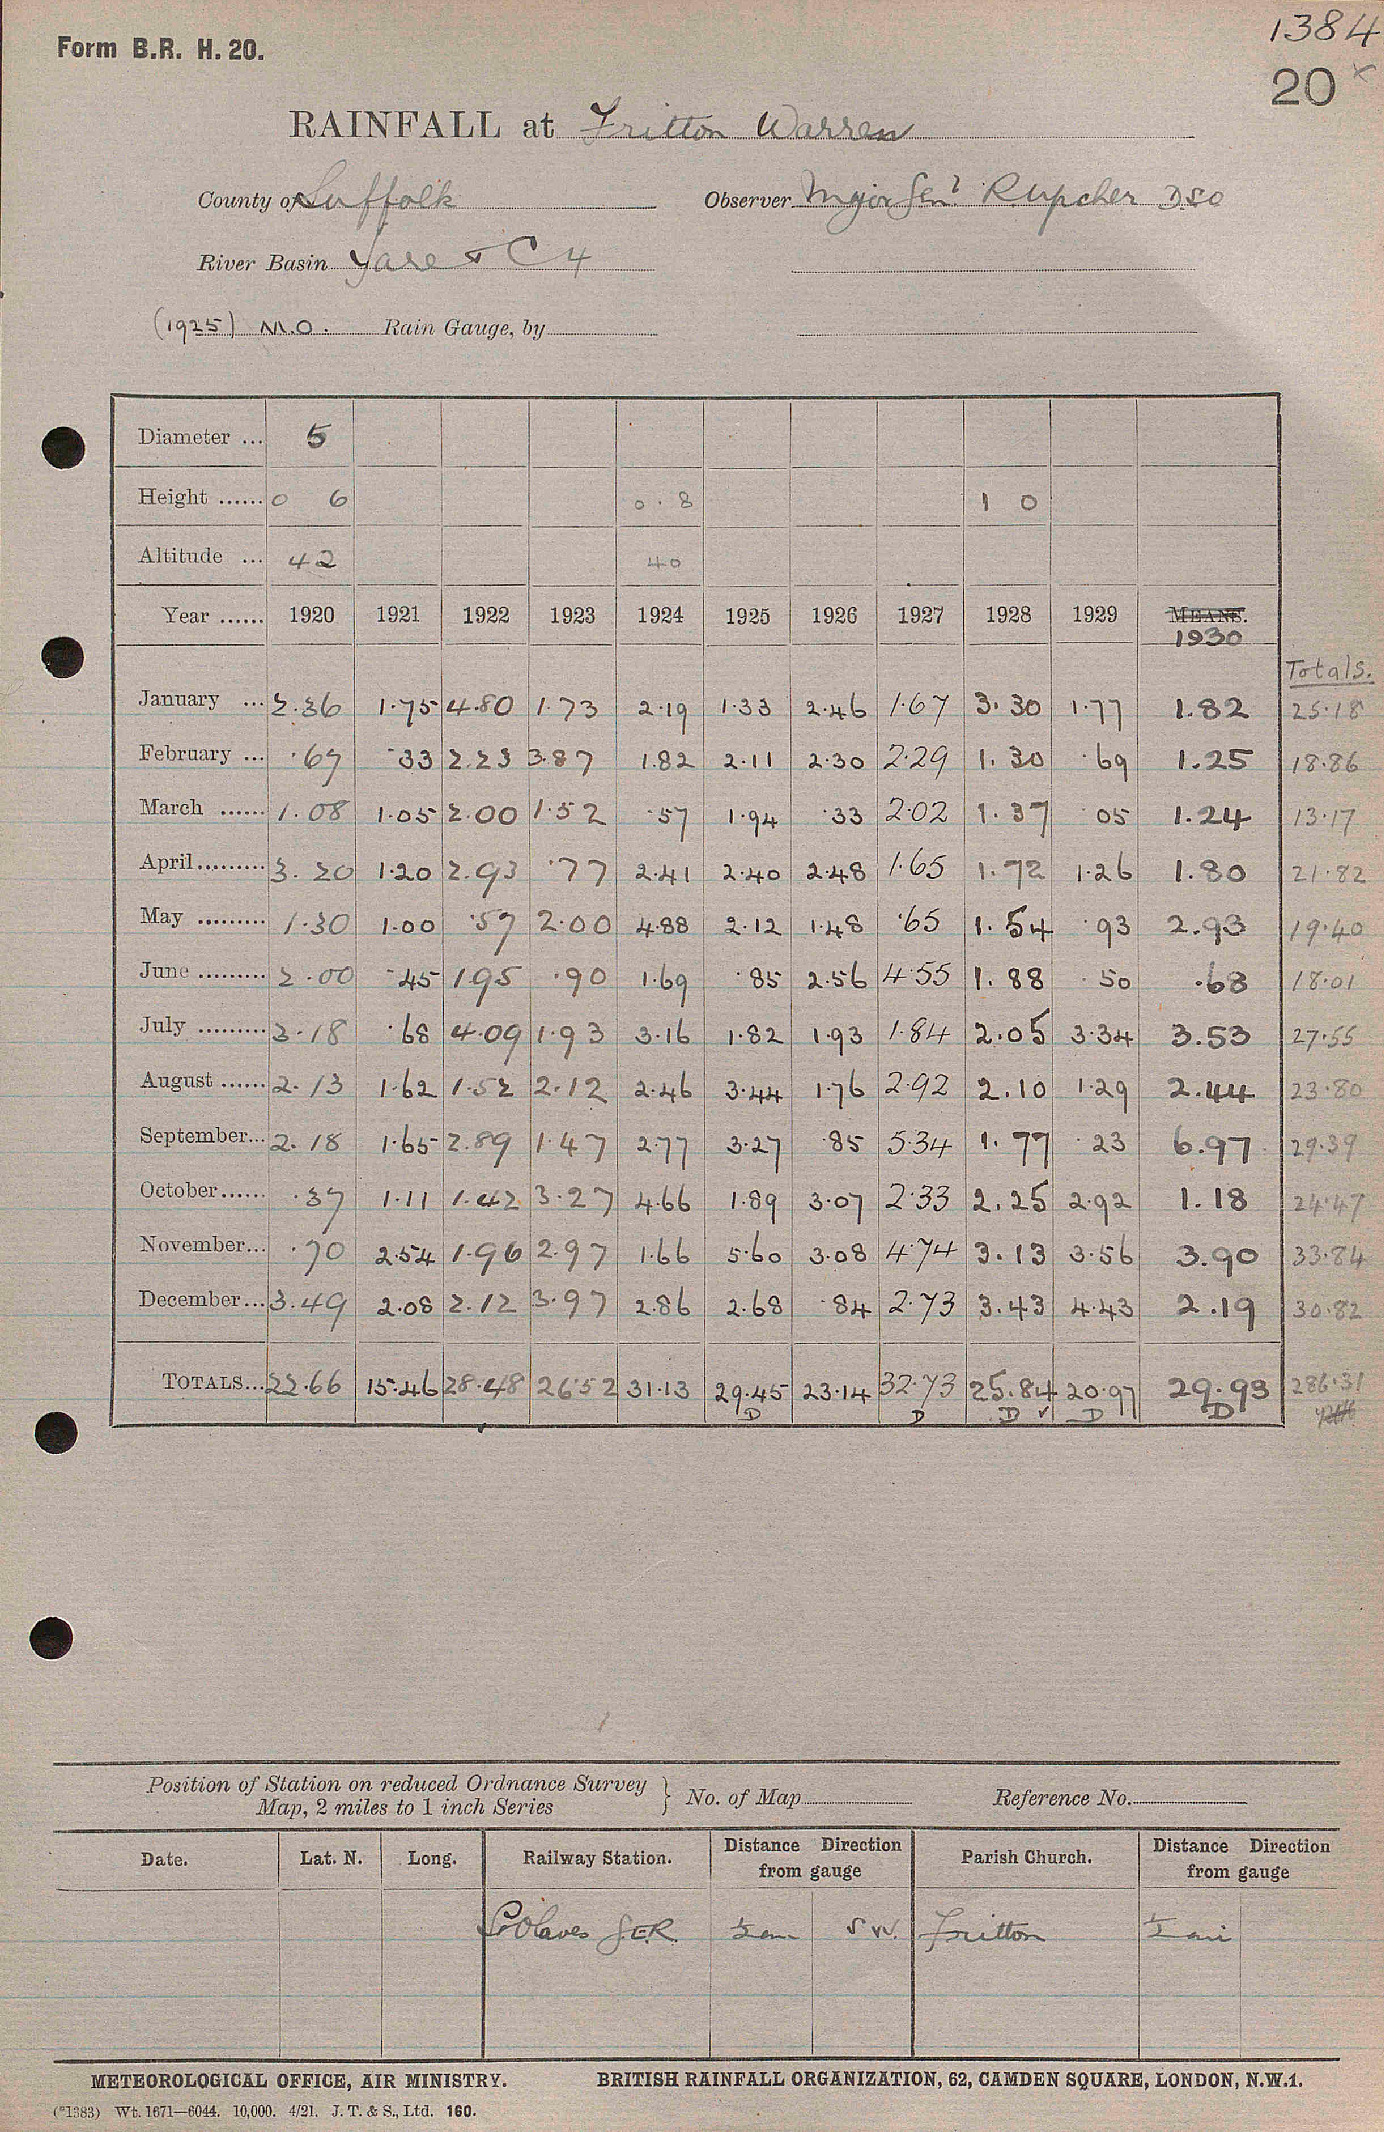 1384
Form B.R. H. 20.
20 x
RAINFALL at Fritton Warren
County of Suffolk Observer Major Genl R Upcher DSO
River Basin Yare & C 4
(1925) M.O. Rain Gauge, by
Diameter ... 5
Height ...... 0 6 0.8 1 0
Altitude ... 42 40
Year ...... 1920 1921 1922 1923 1924 1925 1926 1927 1928 1929 MEANS.
1930
Totals.
January ... 2.36 1.75 4.80 1.73 2.19 1.33 2.46 1.67 3.30 1.77 1.82 25.18
February ... .67 .33 2.23 3.87 1.82 2.11 2.30 2.29 1.30 .69 1.25 18.86
March ...... 1.08 1.05 2.00 1.52 .57 1.94 .33 2.02 1.37 05 1.24 13.17
April......... 3.20 1.20 2.93 .77 2.41 2.40 2.48 1.65 1.72 1.26 1.80 21.82
May ......... 1.30 1.00 .57 2.00 4.88 2.12 1.48 .65 1.54 93 2.93 19.40
June ......... 2.00 .45 1.95 .90 1.69 .85 2.56 4.55 1.88 .50 .68 18.01
July ......... 3.18 .68 4.09 1.93 3.16 1.82 1.93 1.84 2.05 3.34 3.53 27.55
August ...... 2.13 1.62 1.52 2.12 2.46 3.44 1.76 2.92 2.10 1.29 2.44 23.80
September... 2.18 1.65 2.89 1.47 2.77 3.27 .85 5.34 1.77 .23 6.97 29.39
October...... .37 1.11 1.42 3.27 4.66 1.89 3.07 2.33 2.25 2.92 1.18 24.47
November... .70 2.54 1.96 2.97 1.66 5.60 3.08 4.74 3.13 3.56 3.90 33.84
December... 3.49 2.08 2.12 3.97 2.86 2.68 .84 2.73 3.43 4.43 2.19 30.82
TOTALS... 22.66 15.46 28.48 26.52 31.13 29.45 23.14 32.73 25.84 20.97 29.93 286.31
D D D ✓ D D
Position of Station on reduced Ordnance Survey
Map, 2 miles to 1 inch Series } No. of Map Reference No.
Date. Lat. N. Long. Railway Station. Distance Direction from gauge Parish Church. Distance Direction from gauge
St Olaves G.E.R. S W. Fritton
METEOROLOGICAL OFFICE, AIR MINISTRY. BRITISH RAINFALL ORGANIZATION, 62, CAMDEN SQUARE, LONDON, N.W.1.
(*1383) Wt. 1671—6044. 10,000. 4/21. J. T. & S., Ltd. 160.